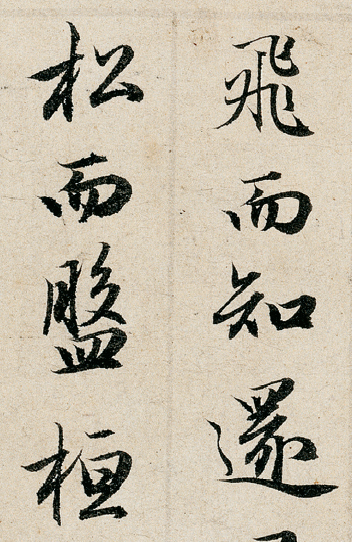 飛而知還
松而盤桓